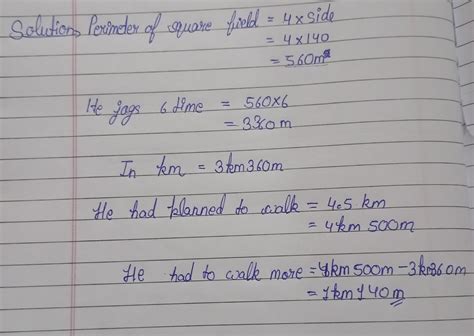 Solution, Perimeter of square field = 4 x side
= 4 x 140
= 560m
He jogs 6 time = 560x6
= 3360 m
In km = 3km360m
He had planned to walk = 4.5 km
= 4km 500m
He had to walk more = 4km 500m - 3km360m
= 1km 140m